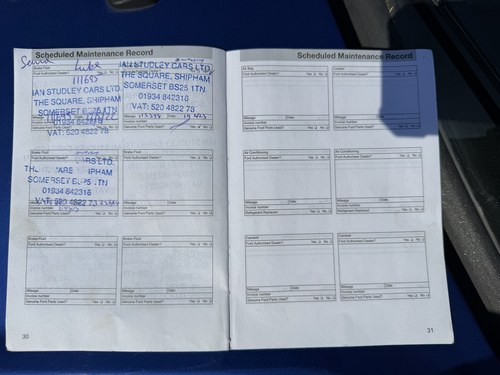 Scheduled Maintenance Record
Brake Fluid
Ford Authorised Dealer? Yes No
111695
IAN STUDLEY CARS LTD.
THE SQUARE, SHIPHAM
SOMERSET BS25 1TN
01934 842316
VAT: 520 4822 78
Invoice number
Genuine Ford Parts Used? Yes No
IAN STUDLEY CARS LTD.
THE SQUARE, SHIPHAM
SOMERSET BS25 1TN
01934 842316
VAT: 520 4822 78
Mileage Date
Invoice number
Genuine Ford Parts Used? Yes No
Brake Fluid
ARS LTD.
IPHAM
SOMERSET
01934 842316
VAT: 520 4822 78
Invoice number
Genuine Ford Parts Used? Yes No
Brake Fluid
Ford Authorised Dealer? Yes No
Mileage Date
Invoice number
Genuine Ford Parts Used? Yes No
Brake Fluid
Ford Authorised Dealer? Yes No
Mileage Date
Invoice number
Genuine Ford Parts Used? Yes No
Brake Fluid
Ford Authorised Dealer? Yes No
Mileage Date
Invoice number
Genuine Ford Parts Used? Yes No
30
Scheduled Maintenance Record
Air Bag
Ford Authorised Dealer? Yes No
Mileage Date
Invoice number
Genuine Ford Parts Used? Yes No
Coolant
Ford Authorised Dealer? Yes No
Mileage Date
Invoice number
Genuine Ford Parts Used? Yes No
Air Conditioning
Ford Authorised Dealer? Yes No
Mileage Date
Invoice number
Refrigerant Replaced
Air Conditioning
Ford Authorised Dealer? Yes No
Mileage Date
Invoice number
Refrigerant Replaced
CamBelt
Ford Authorised Dealer? Yes No
Mileage Date
Invoice number
Genuine Ford Parts Used? Yes No
CamBelt
Ford Authorised Dealer? Yes No
Mileage Date
Invoice number
Genuine Ford Parts Used? Yes No
31